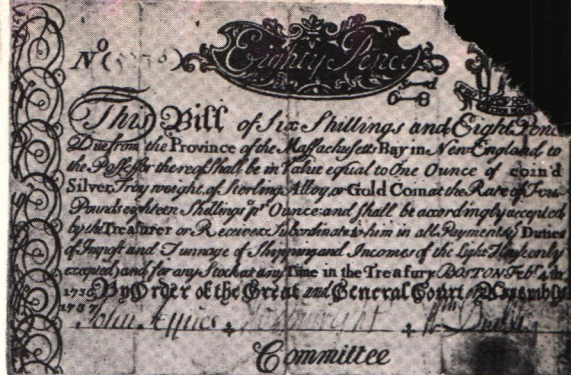 No
Eighty Pence
6=d 8
This Bill of Six Shillings and Eight Penc
Due from the Province of the Massachusetts Bay in New England to
the Possessor thereof Shall be in Value equal to One Ounce of coin'd
Silver, Troy weight, of Sterling Alloy, or Gold Coin at the Rate of Four
Pounds eighteen Shillings pr Ounce: and Shall be accordingly accepted
by the Treasurer or Receivers Subordinate to him in all Payments (Duties
of Impost and Tunnage of Shipping and Incomes of the Light House only
excepted) and for any Stock at any Time in the Treasury. BOSTON Feb. 4th
1736. By Order of the Great and General Court or Assembly
1737
John
Committee